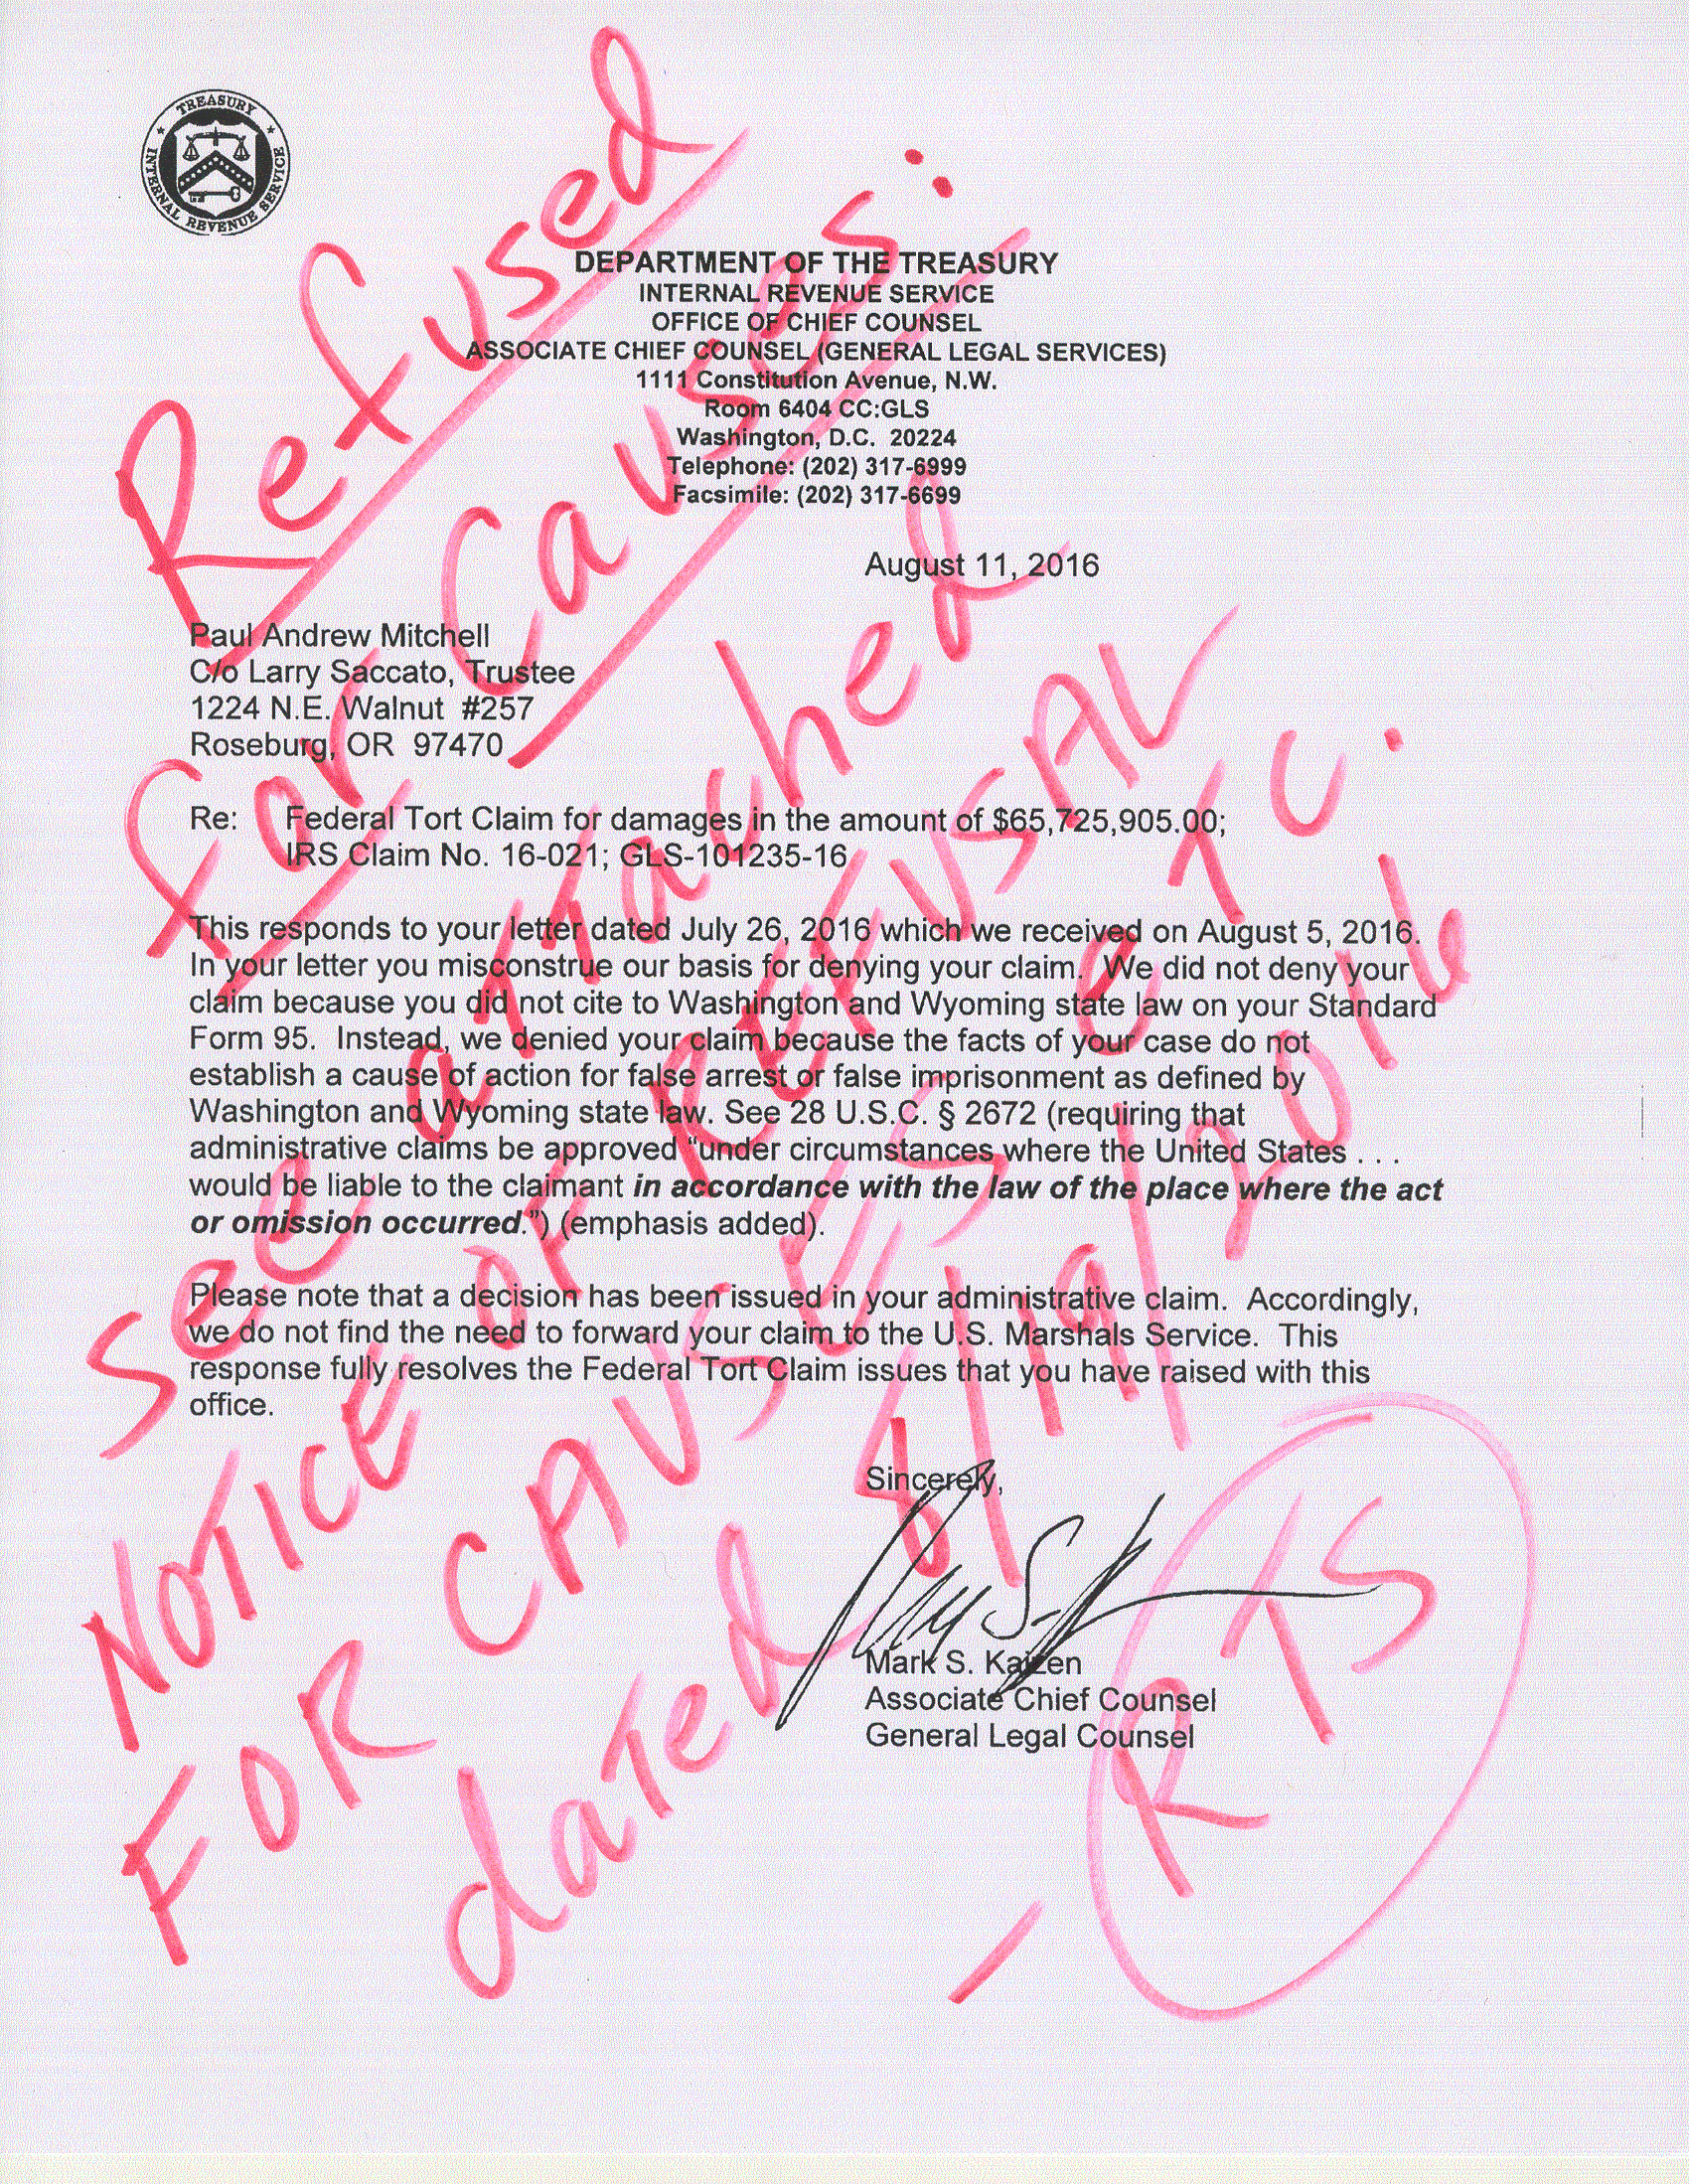 TREASURY
INTERNAL REVENUE SERVICE
DEPARTMENT OF THE TREASURY
INTERNAL REVENUE SERVICE
OFFICE OF CHIEF COUNSEL
ASSOCIATE CHIEF COUNSEL (GENERAL LEGAL SERVICES)
1111 Constitution Avenue, N.W.
Room 6404 CC:GLS
Washington, D.C. 20224
Telephone: (202) 317-6999
Facsimile: (202) 317-6699
August 11, 2016
Paul Andrew Mitchell
C/o Larry Saccato, Trustee
1224 N.E. Walnut #257
Roseburg, OR 97470
Re: Federal Tort Claim for damages in the amount of $65,725,905.00;
IRS Claim No. 16-021; GLS-101235-16
This responds to your letter dated July 26, 2016 which we received on August 5, 2016.
In your letter you misconstrue our basis for denying your claim. We did not deny your
claim because you did not cite to Washington and Wyoming state law on your Standard
Form 95. Instead, we denied your claim because the facts of your case do not
establish a cause of action for false arrest or false imprisonment as defined by
Washington and Wyoming state law. See 28 U.S.C. § 2672 (requiring that
administrative claims be approved "under circumstances where the United States . . .
would be liable to the claimant in accordance with the law of the place where the act
or omission occurred.") (emphasis added).
Please note that a decision has been issued in your administrative claim. Accordingly,
we do not find the need to forward your claim to the U.S. Marshals Service. This
response fully resolves the Federal Tort Claim issues that you have raised with this
office.
Sincerely,
Mark S. Kaizen
Associate Chief Counsel
General Legal Counsel
Refused
for Causes:
see aTTached
NOTICE OF REFUSAL
FOR CAUSES eTC.
daTed 8/19/2016
- RTS